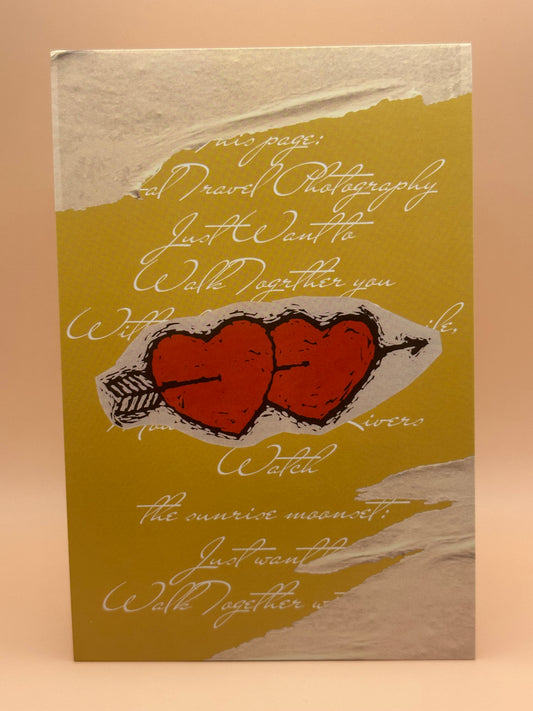 this page:
al Travel Photography
Just Want to
Walk Togrther you
With
ile,
Rivers
Watch
the sunrise moonset:
Just want
Walk Together w